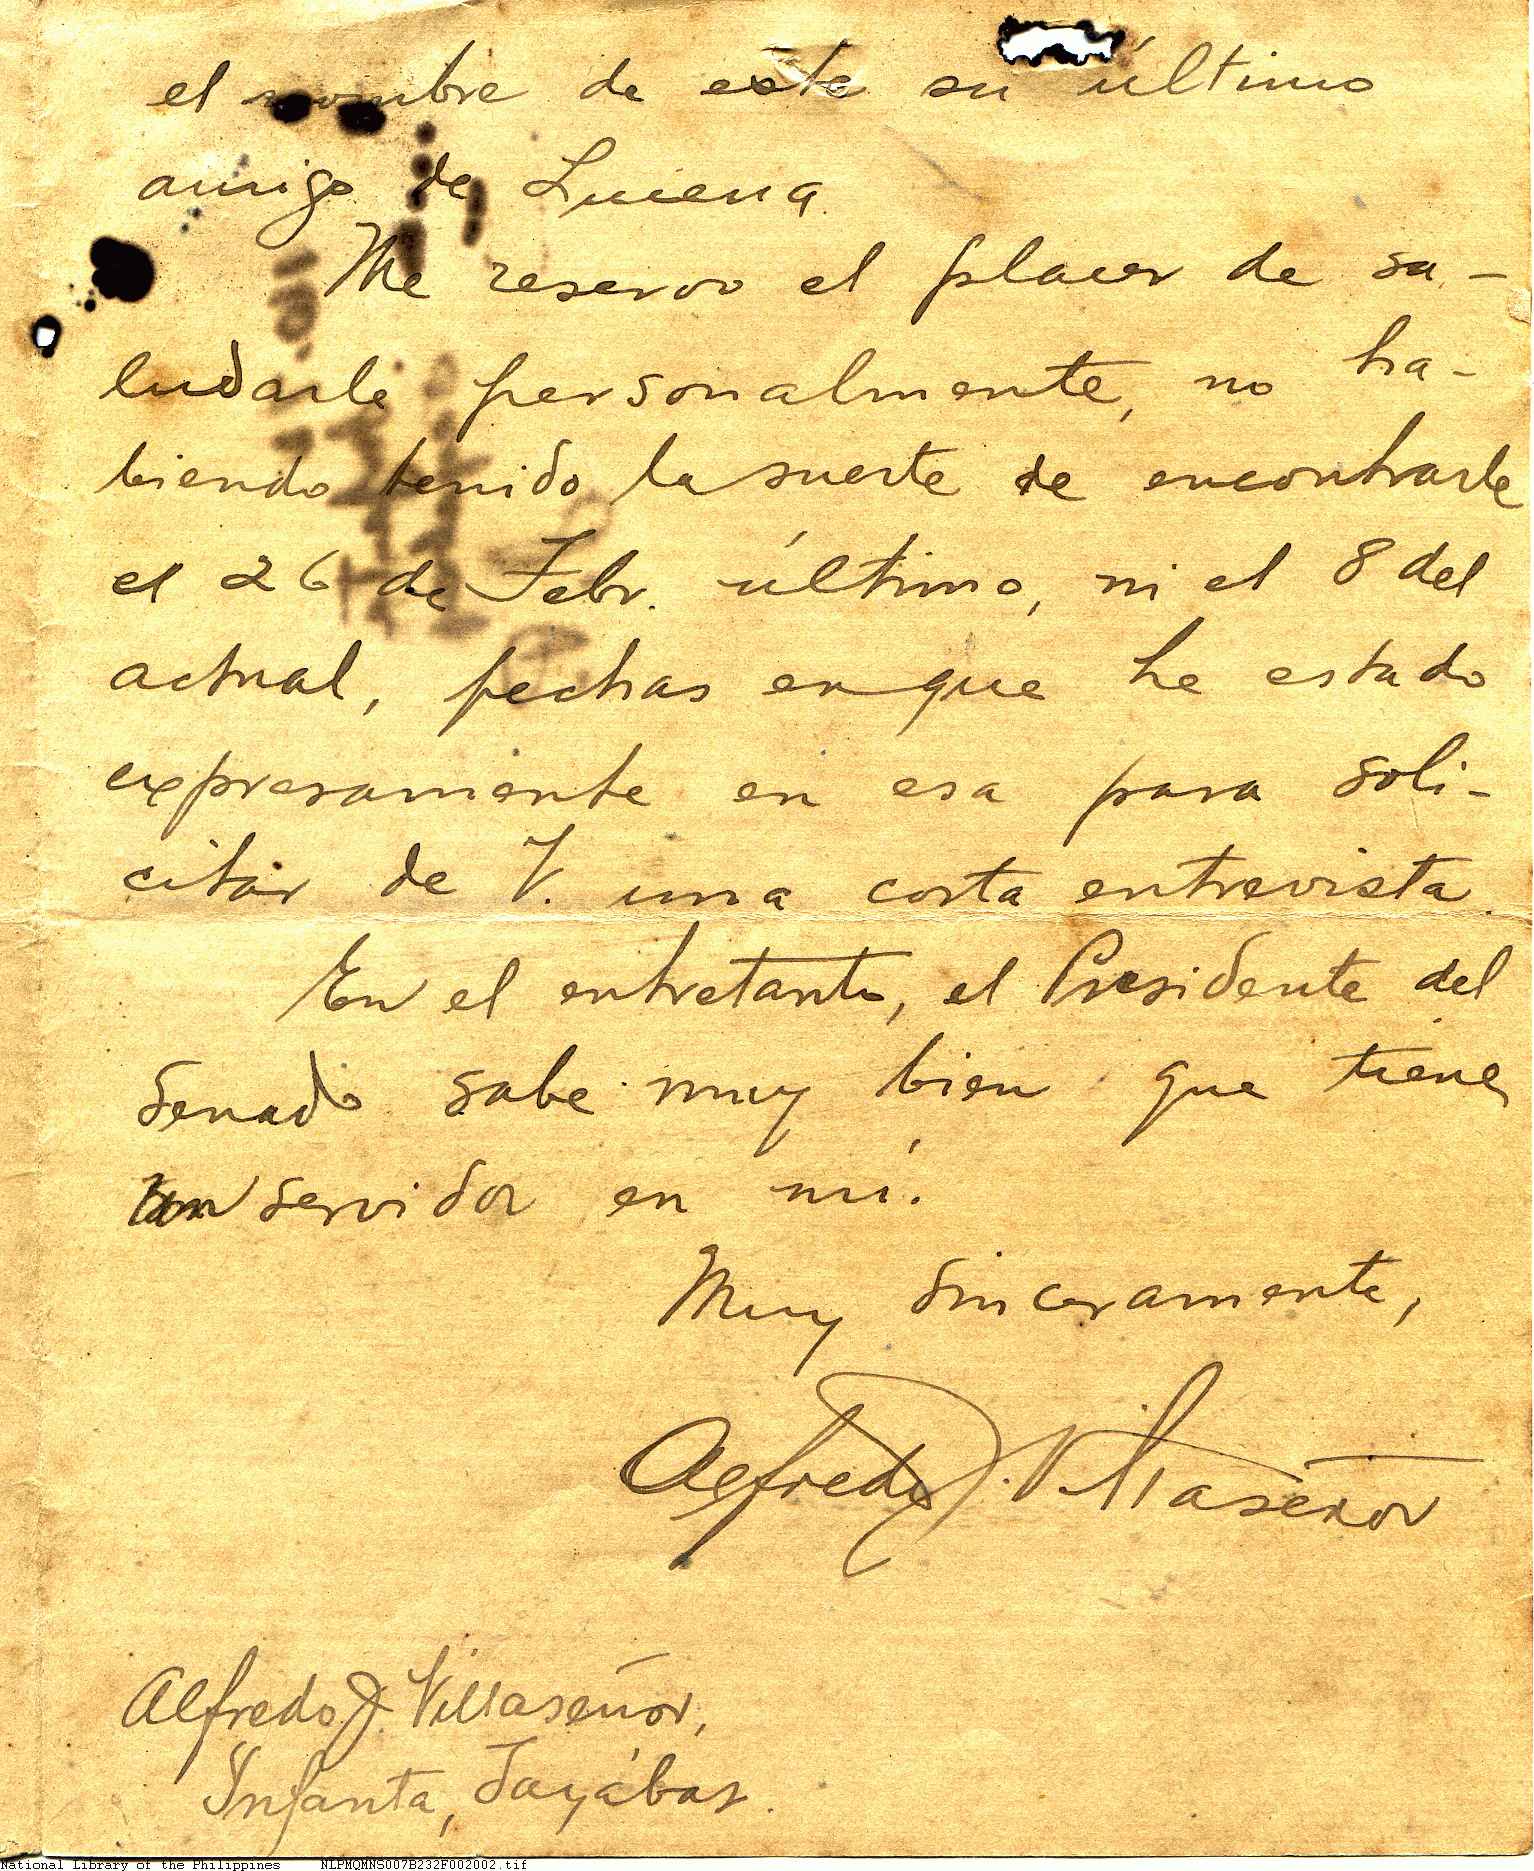 el nombre de este su último
amigo de Lucena.
Me reservo el placer de sa-
ludarle personalmente, no ha-
biendo tenido la suerte de encontrarle
el 26 de Febr. último, ni el 8 del
actual, fechas en que he estado
expresamente en esa para soli-
citar de V. una corta entrevista.
En el entretanto, el Presidente del
Senado sabe muy bien que tiene
un servidor en mí.
Muy sinceramente,
Alfredo J. Villaseñor
Alfredo J. Villaseñor,
Infanta, Tayábas.
National Library of the Philippines NLPMQMNS007B232F002002.tif